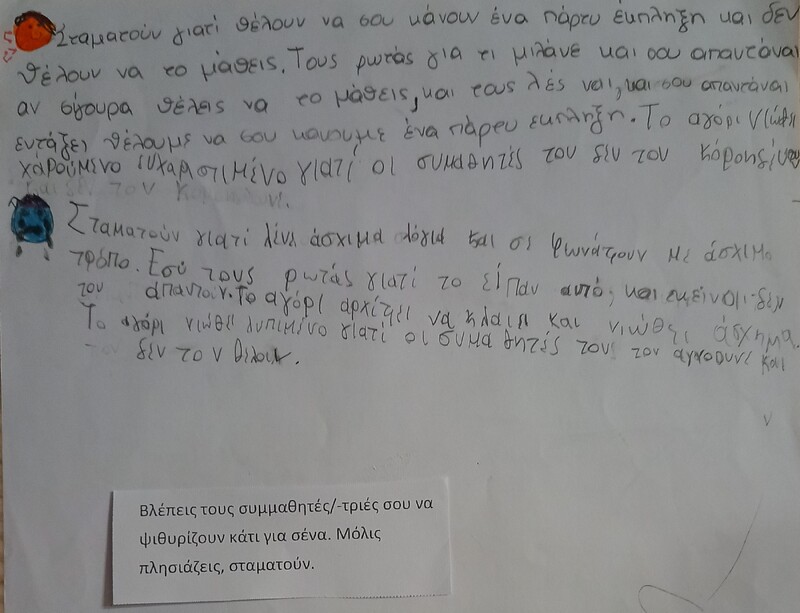 Σταματούν γιατί θέλουν να σου κάνουν ένα πάρτυ έκπληξη και δεν
θέλουν να το μάθεις. Τους ρωτάς για τι μιλάνε και σου απαντάναι
αν σίγουρα θέλεις να το μάθεις, και τους λές ναι, και σου απαντάναι
εντάξει θέλουμε να σου κανουμε ένα πάρτυ εκπληξη. Το αγόρι νιώθει
χαρούμενο ευχαριστιμένο γιατί οι συμαθητές του δεν τον
Σταματούν γιατί λένε άσχιμα λόγια και σε φωνάζουν με άσχιμο
τρόπο. Εσύ τους ρωτάς γιατί το είπαν αυτό, και εκείνοι δεν
του απαντούν. Το αγόρι αρχίζει να κλαίει και νιώθει άσχημα.
Το αγόρι νιώθει λυπιμένο γιατί οι συμαθητές του τον αγνοούν και
δεν τον θέλουν.
Βλέπεις τους συμμαθητές/-τριές σου να
ψιθυρίζουν κάτι για σένα. Μόλις
πλησιάζεις, σταματούν.